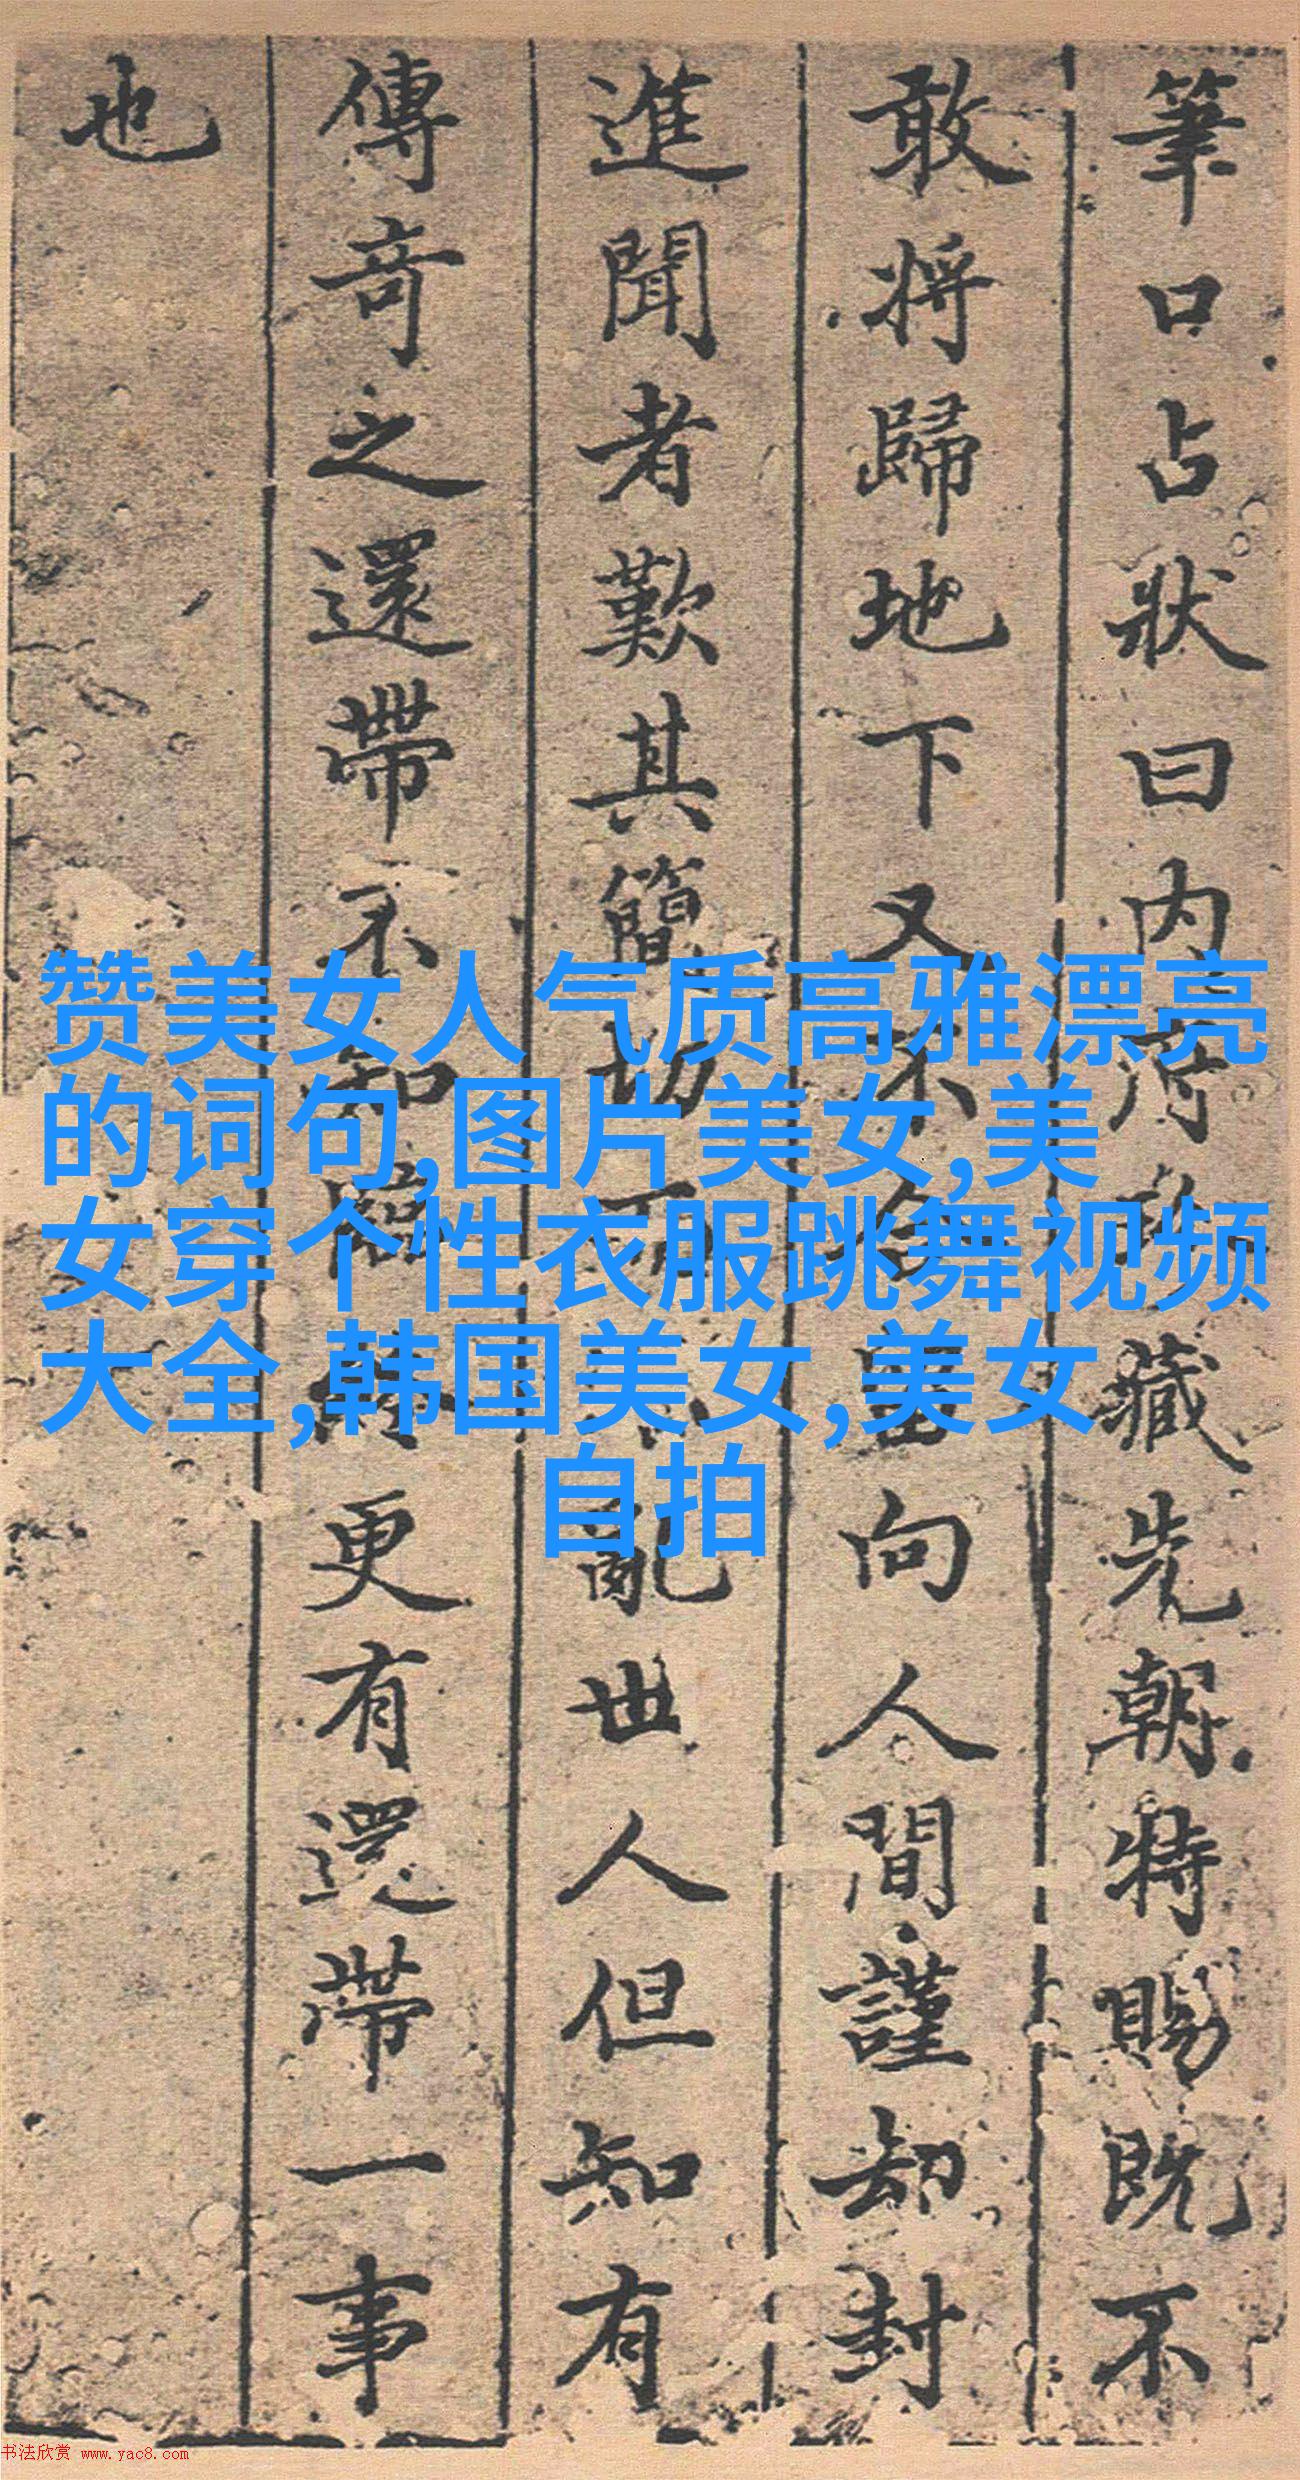 筆口占狀曰内府藏先朝特賜既不
敢將歸地下又不合留向人間謹却封
進聞者歎其簡切而不亂世人但知有
傳奇之還帶不知更有還帶一事
也
赞美女人气质高雅漂亮
的词句,图片美女,美
女穿个性衣服跳舞视频
大全,韩国美女,美女
自拍
书法欣赏 www.yac8.com